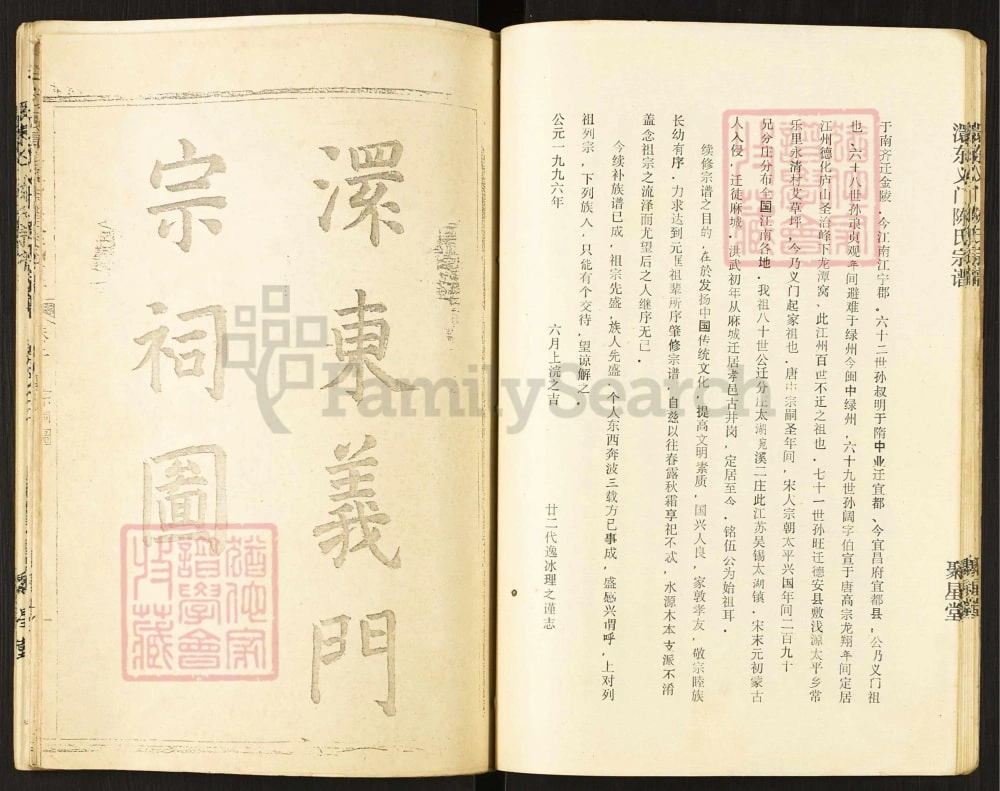 于南齐迁金陵．今江南江宁郡．六十二世孙叔明于隋中业迁宜都、今宜昌府宜都县，公乃义门祖
也、六十八世孙琅贞观年间避难于绿州今闽中绿州．六十九世孙阔字伯宣于唐高宗龙翔年间定居
江州德化庐山圣治峰下龙潭窝、此江州百世不迁之祖也．七十一世孙旺迁德安县敷浅源太平乡常
乐里永清村艾草坪，今乃义门起家祖也．唐中宗嗣圣年间，宋人宗朝太平兴国年间二百九十
兄分庄分布全国江南各地．我祖八十世公迁分庄太湖宛溪二庄此江苏吴锡太湖镇．宋末元初蒙古
人入侵，迁徒麻城．洪武初年从麻城迁居孝邑古井岗，定居至今．铭伍公为始祖耳．
续修宗谱之目的．在於发扬中国传统文化，提高文明素质，国兴人良，家敦孝友，敬宗睦族
长幼有序．力求达到元匡祖辈所序肇修宗谱．自兹以往春露秋霜享祀不忒，水源木本支派不淆
盖念祖宗之流泽而尤望后之人继序无已．
今续补族谱已成，祖宗先盛．族人先盛．个人东西奔波三载方已事成，盛感兴谓呼，上对列
祖列宗，下列族人．只能有个交待．望谅解之．
公元一九九六年 六月上浣之吉 廿二代逸冰理之谨志
澴东义门陈氏宗谱
聚星堂
澴東義門
宗祠圖
FamilySearch